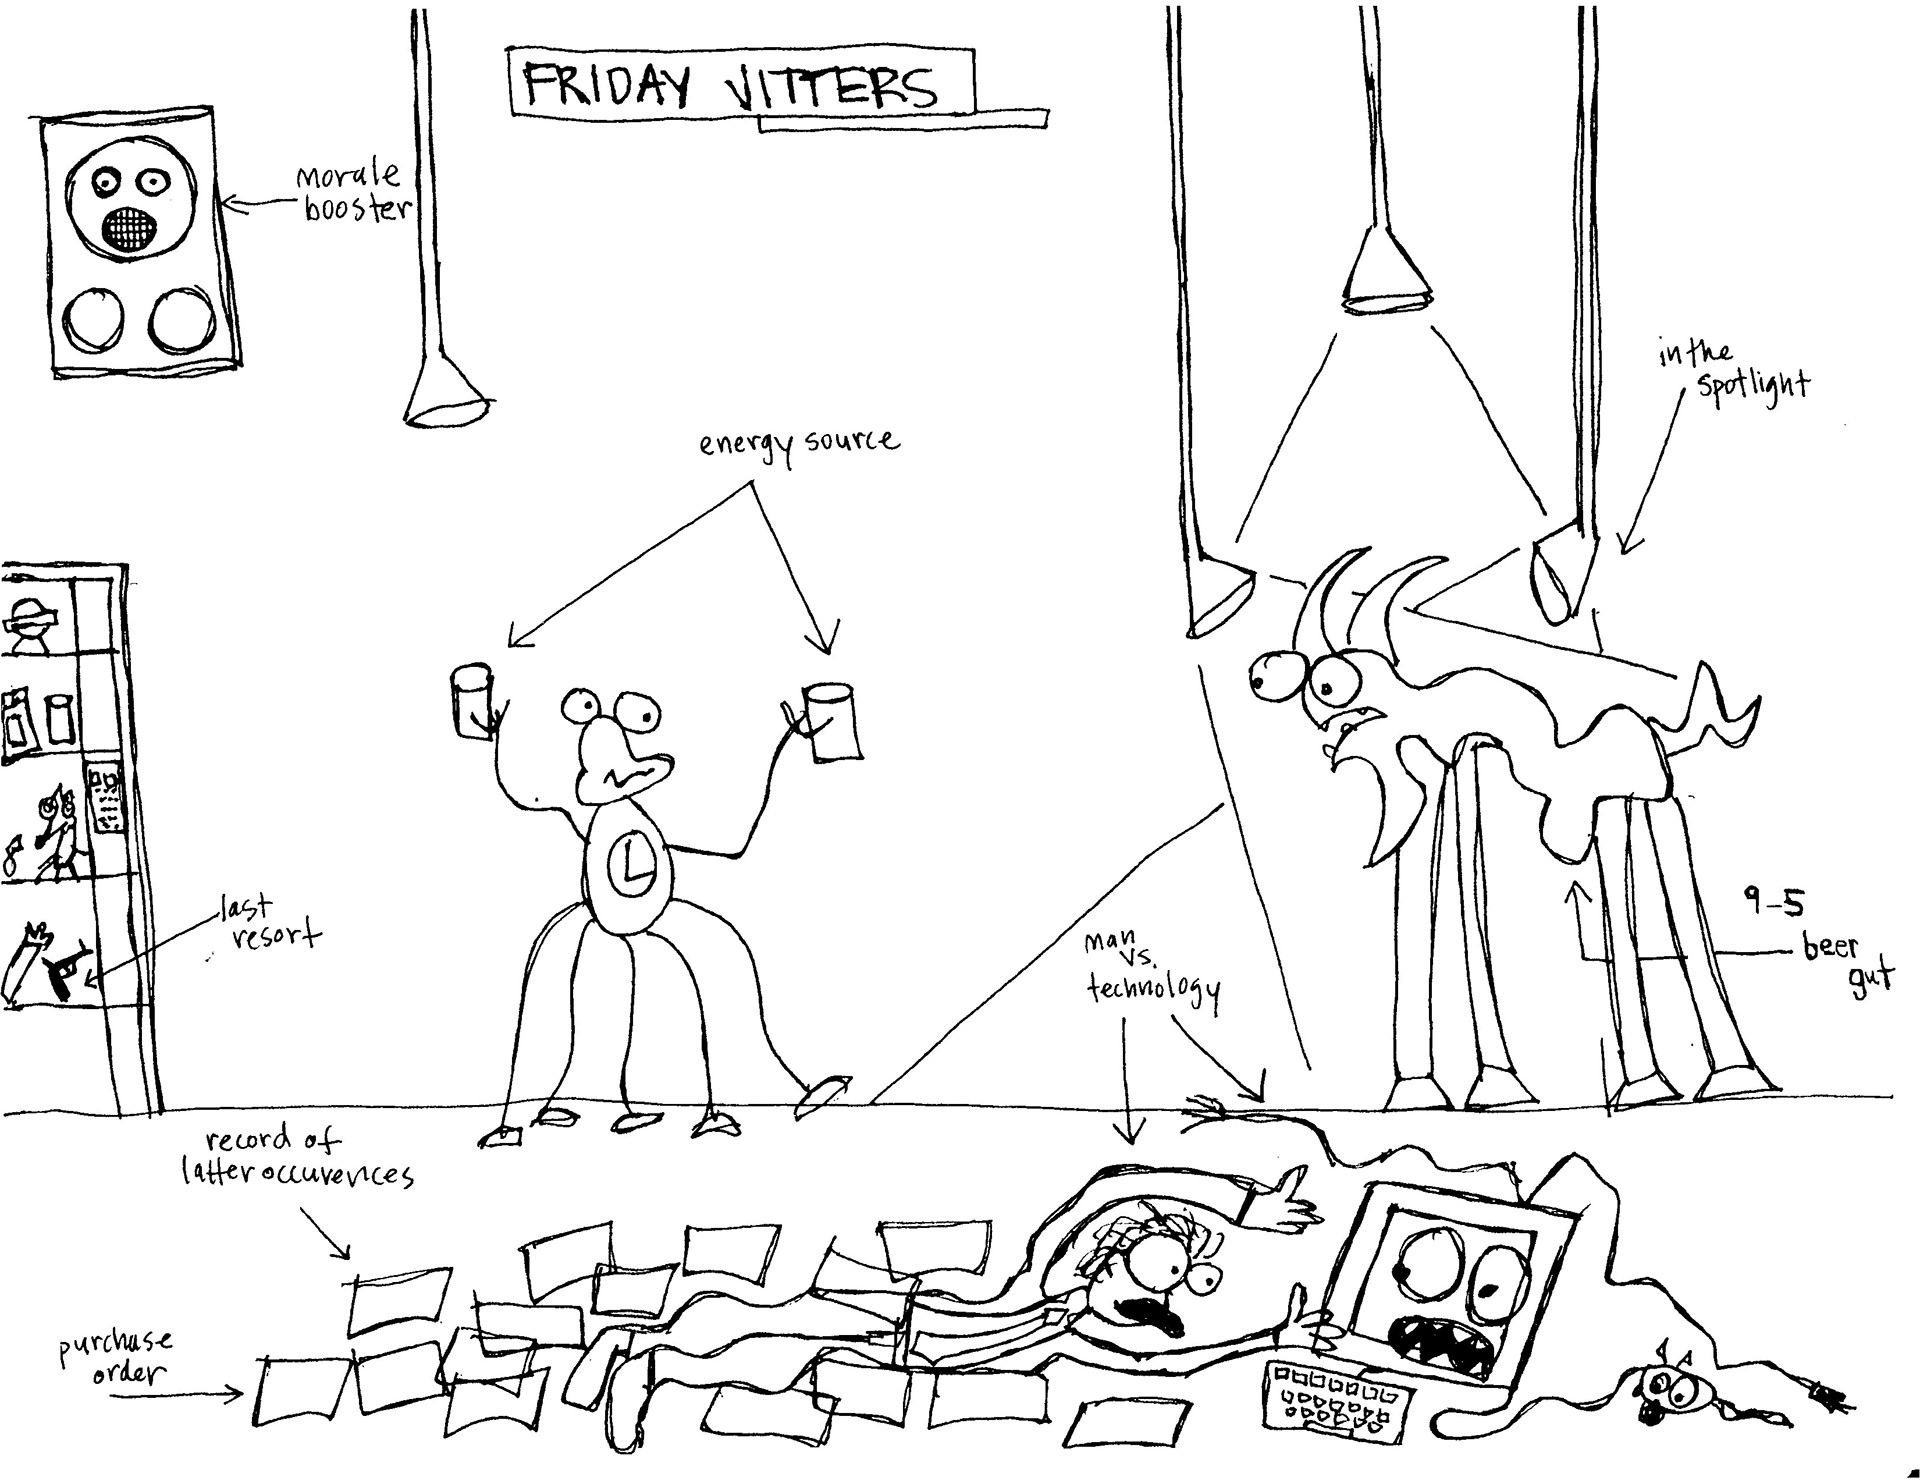 FRIDAY JITTERS
morale
booster
in the
spotlight
energy source
last
resort
9-5
beer
gut
man
vs.
technology
record of
latter occurences
purchase
order